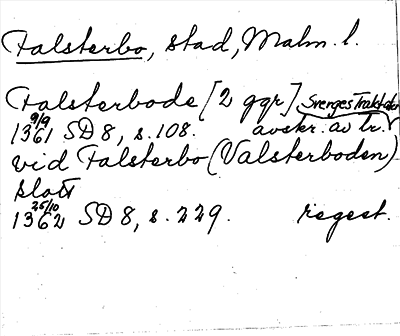 Falsterbo, stad, Malm. l.
Falsterbode [2 ggr] Sverges Traktater
1361 9/9 SD 8, s. 108. avskr. av tr.
vid Falsterbo (Valsterboden)
slott
1362 25/10 SD 8, s. 229. regest.